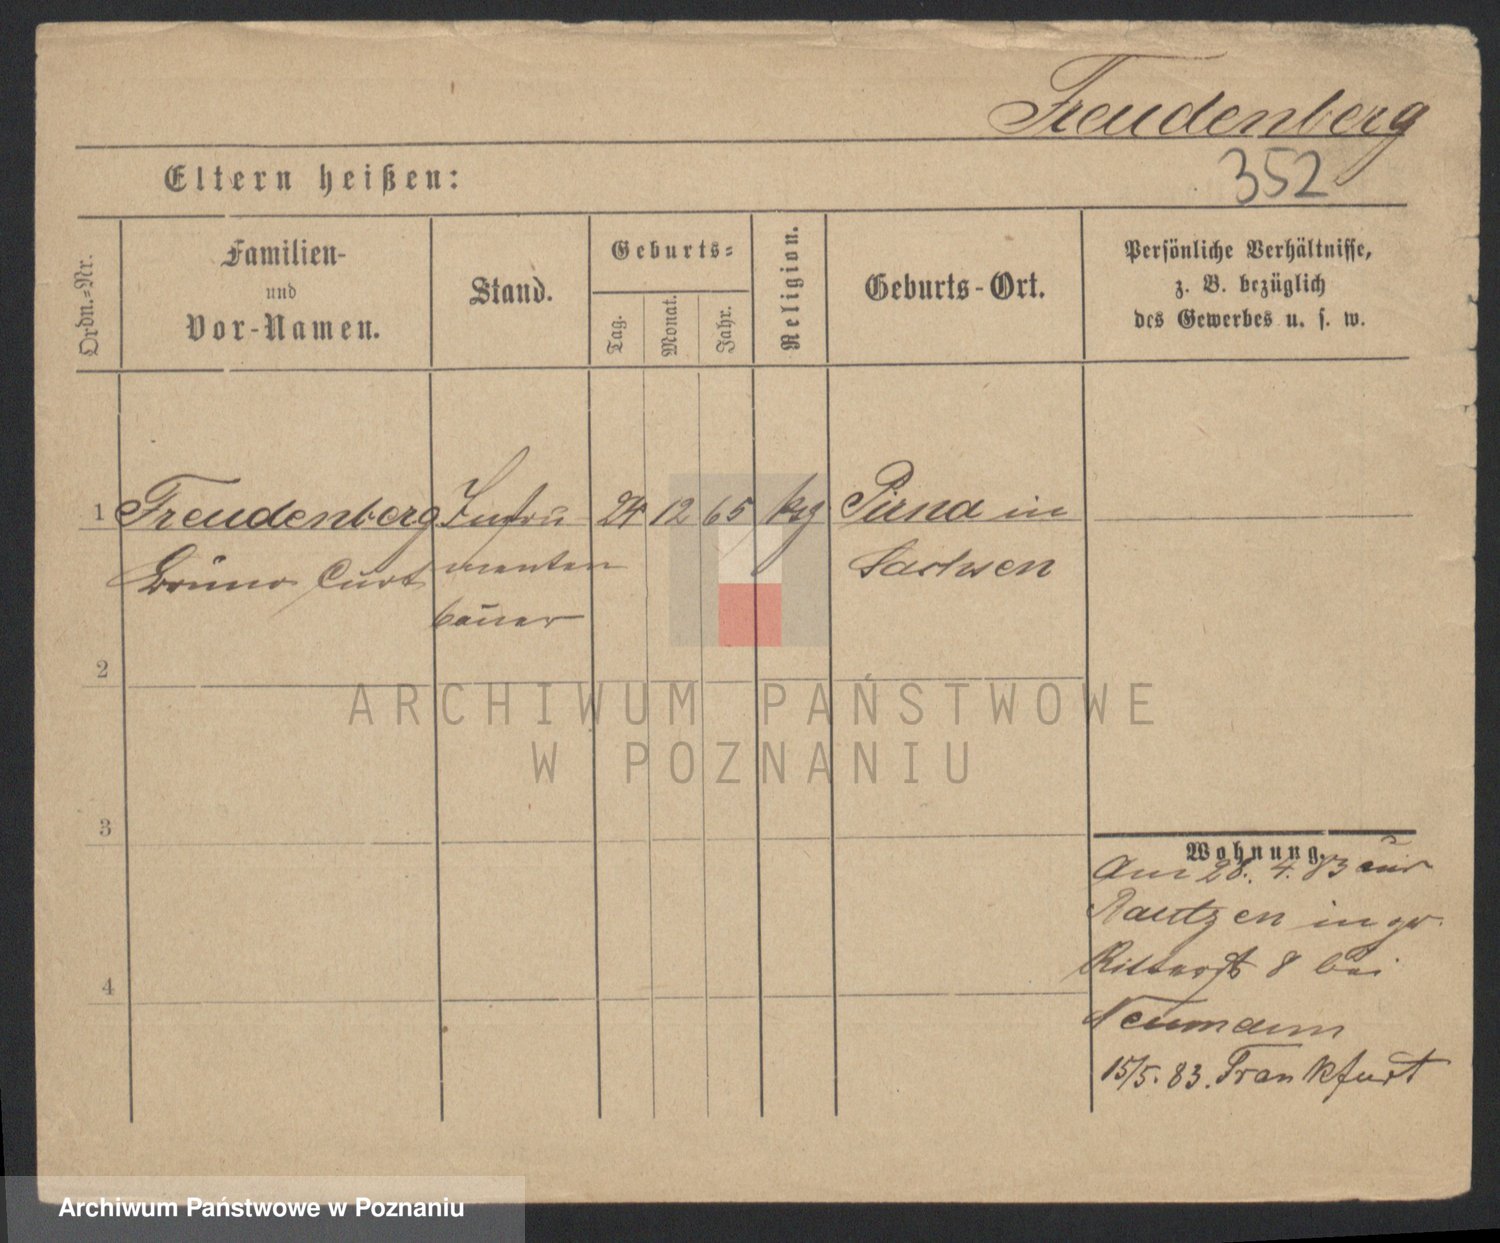 Freudenberg
352
Eltern heißen:
Ordn.-Nr.
Familien-
und
Vor-Namen.
Stand.
Geburts-
Tag.
Monat.
Jahr.
Religion.
Geburts-Ort.
Persönliche Verhältnisse,
z. B. bezüglich
des Gewerbes u. s. w.
1 Freudenberg Instru 24 12 65 Pirna in
Bruno Curt menten Sachsen
bauer
2
3
4
Wohnung.
Am 28. 4. 83 aus
Bautzen in gr.
Ritterst 8 bei
Neumann
15/5. 83. Frankfurt
ARCHIWUM PAŃSTWOWE
W POZNANIU
Archiwum Państwowe w Poznaniu